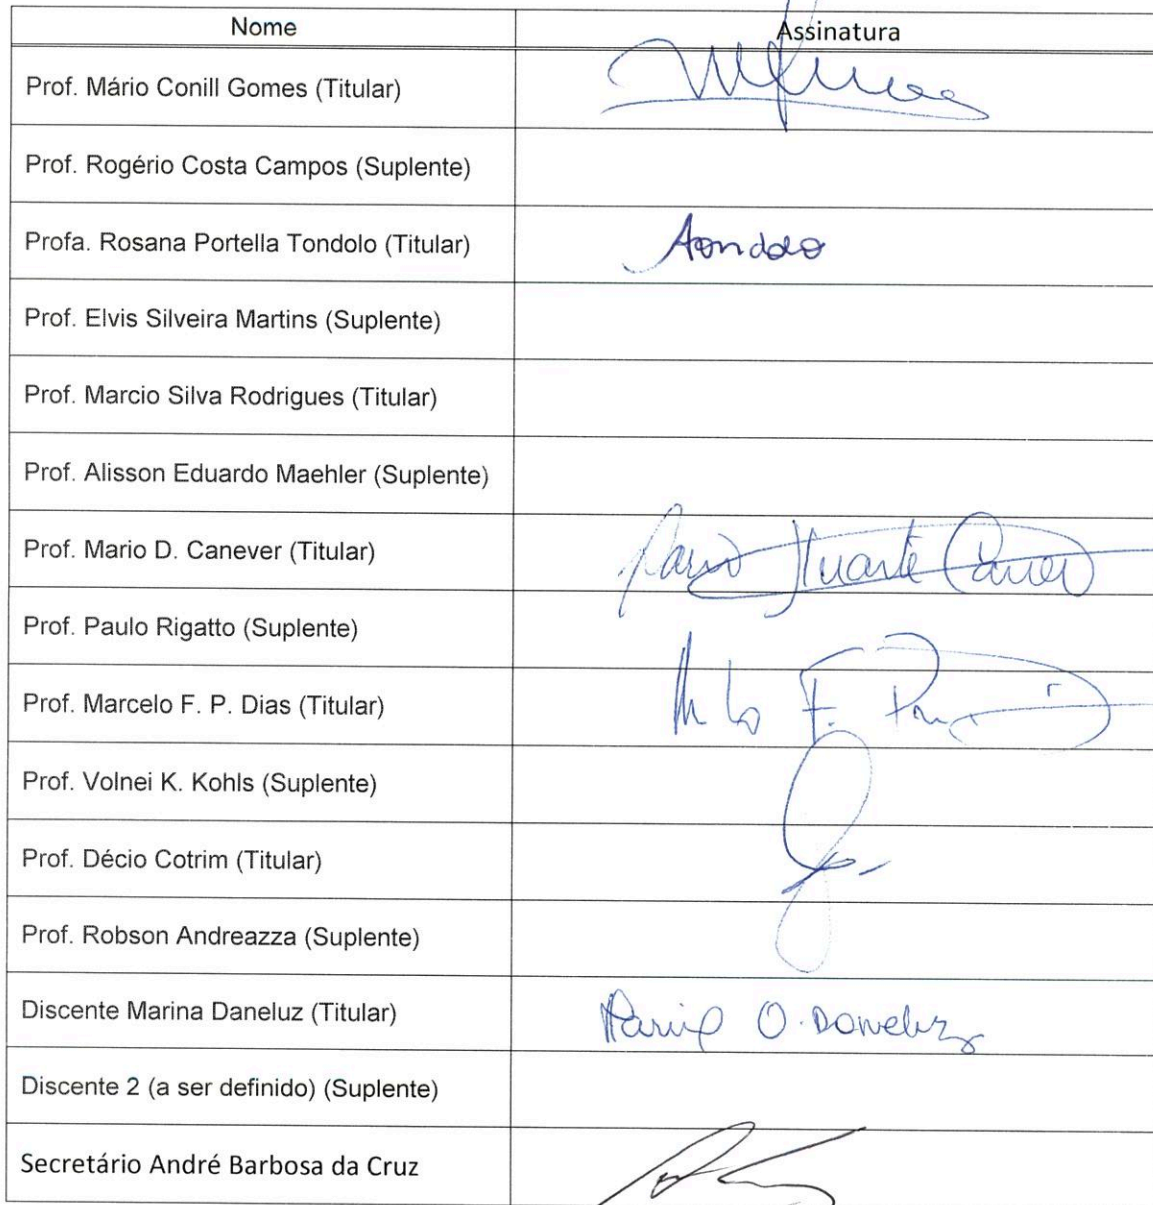 Nome Assinatura
Prof. Mário Conill Gomes (Titular)
Prof. Rogério Costa Campos (Suplente)
Profa. Rosana Portella Tondolo (Titular) Tondolo
Prof. Elvis Silveira Martins (Suplente)
Prof. Marcio Silva Rodrigues (Titular)
Prof. Alisson Eduardo Maehler (Suplente)
Prof. Mario D. Canever (Titular) Mario Duarte Canever
Prof. Paulo Rigatto (Suplente)
Prof. Marcelo F. P. Dias (Titular)
Prof. Volnei K. Kohls (Suplente)
Prof. Décio Cotrim (Titular)
Prof. Robson Andreazza (Suplente)
Discente Marina Daneluz (Titular) Marina O. Daneluz
Discente 2 (a ser definido) (Suplente)
Secretário André Barbosa da Cruz